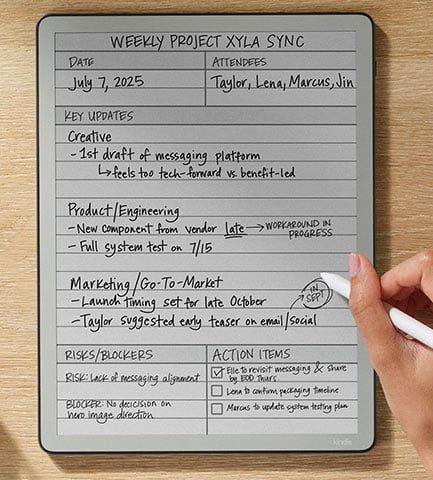 WEEKLY PROJECT XYLA SYNC
DATE
July 7, 2025
ATTENDEES
Taylor, Lena, Marcus, Jin
KEY UPDATES
Creative
- 1st draft of messaging platform
↳ feels too tech-forward vs benefit-led
Product/Engineering
- New component from vendor late → WORKAROUND IN
PROGRESS
- Full system test on 7/15
Marketing/Go-To-Market
- Launch timing set for late October
- Taylor suggested early teaser on email/social
IN
SEPT
RISKS/BLOCKERS
RISK: Lack of messaging alignment
BLOCKER: No decision on
hero image direction
ACTION ITEMS
☑ Elle to revisit messaging & share
by EOD Thurs
☐ Lena to confirm packaging timeline
☐ Marcus to update system testing plan
kindle